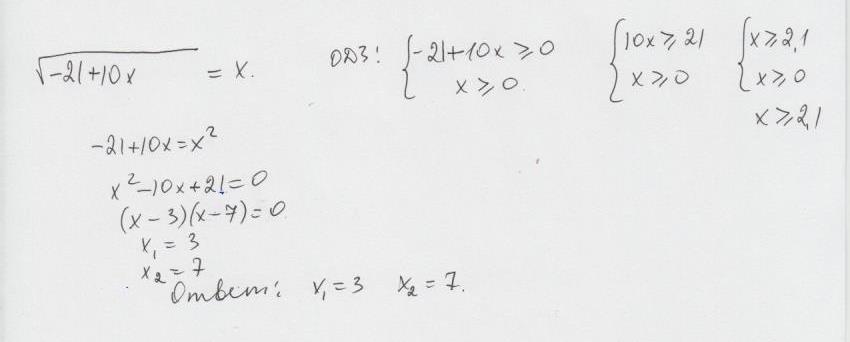 √-21+10x = x. ОДЗ: { -21+10x ⩾ 0 { 10x ⩾ 21 { x ⩾ 2,1
x ⩾ 0. x ⩾ 0 x ⩾ 0
x ⩾ 2,1
-21+10x=x²
x²-10x+21=0
(x-3)(x-7)=0
x₁ = 3
x₂ = 7
Ответ: x₁=3 x₂=7.